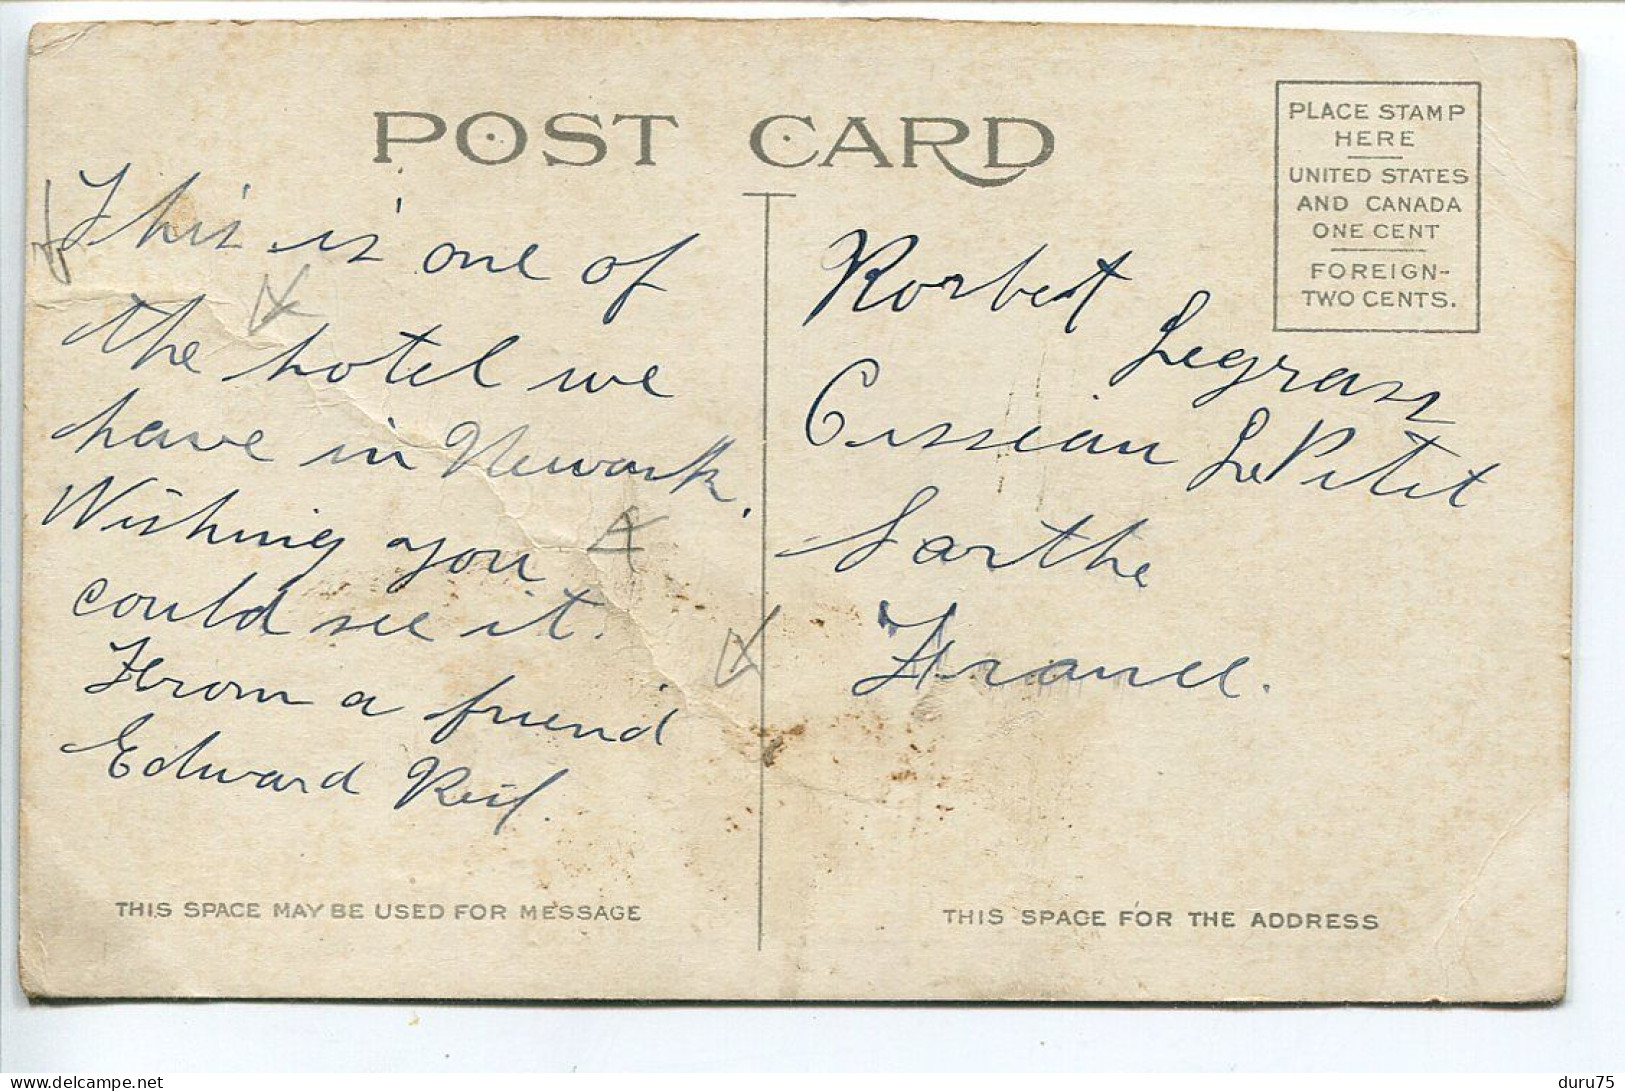 POST CARD
PLACE STAMP
HERE
UNITED STATES
AND CANADA
ONE CENT
FOREIGN-
TWO CENTS.
This is one of
the hotel we
have in Newark.
Wishing you
could see it.
From a friend
Edward
Rorbert
Legran
Le Petit
Sarthe
France.
THIS SPACE MAY BE USED FOR MESSAGE
THIS SPACE FOR THE ADDRESS
delcampe.net
duru75